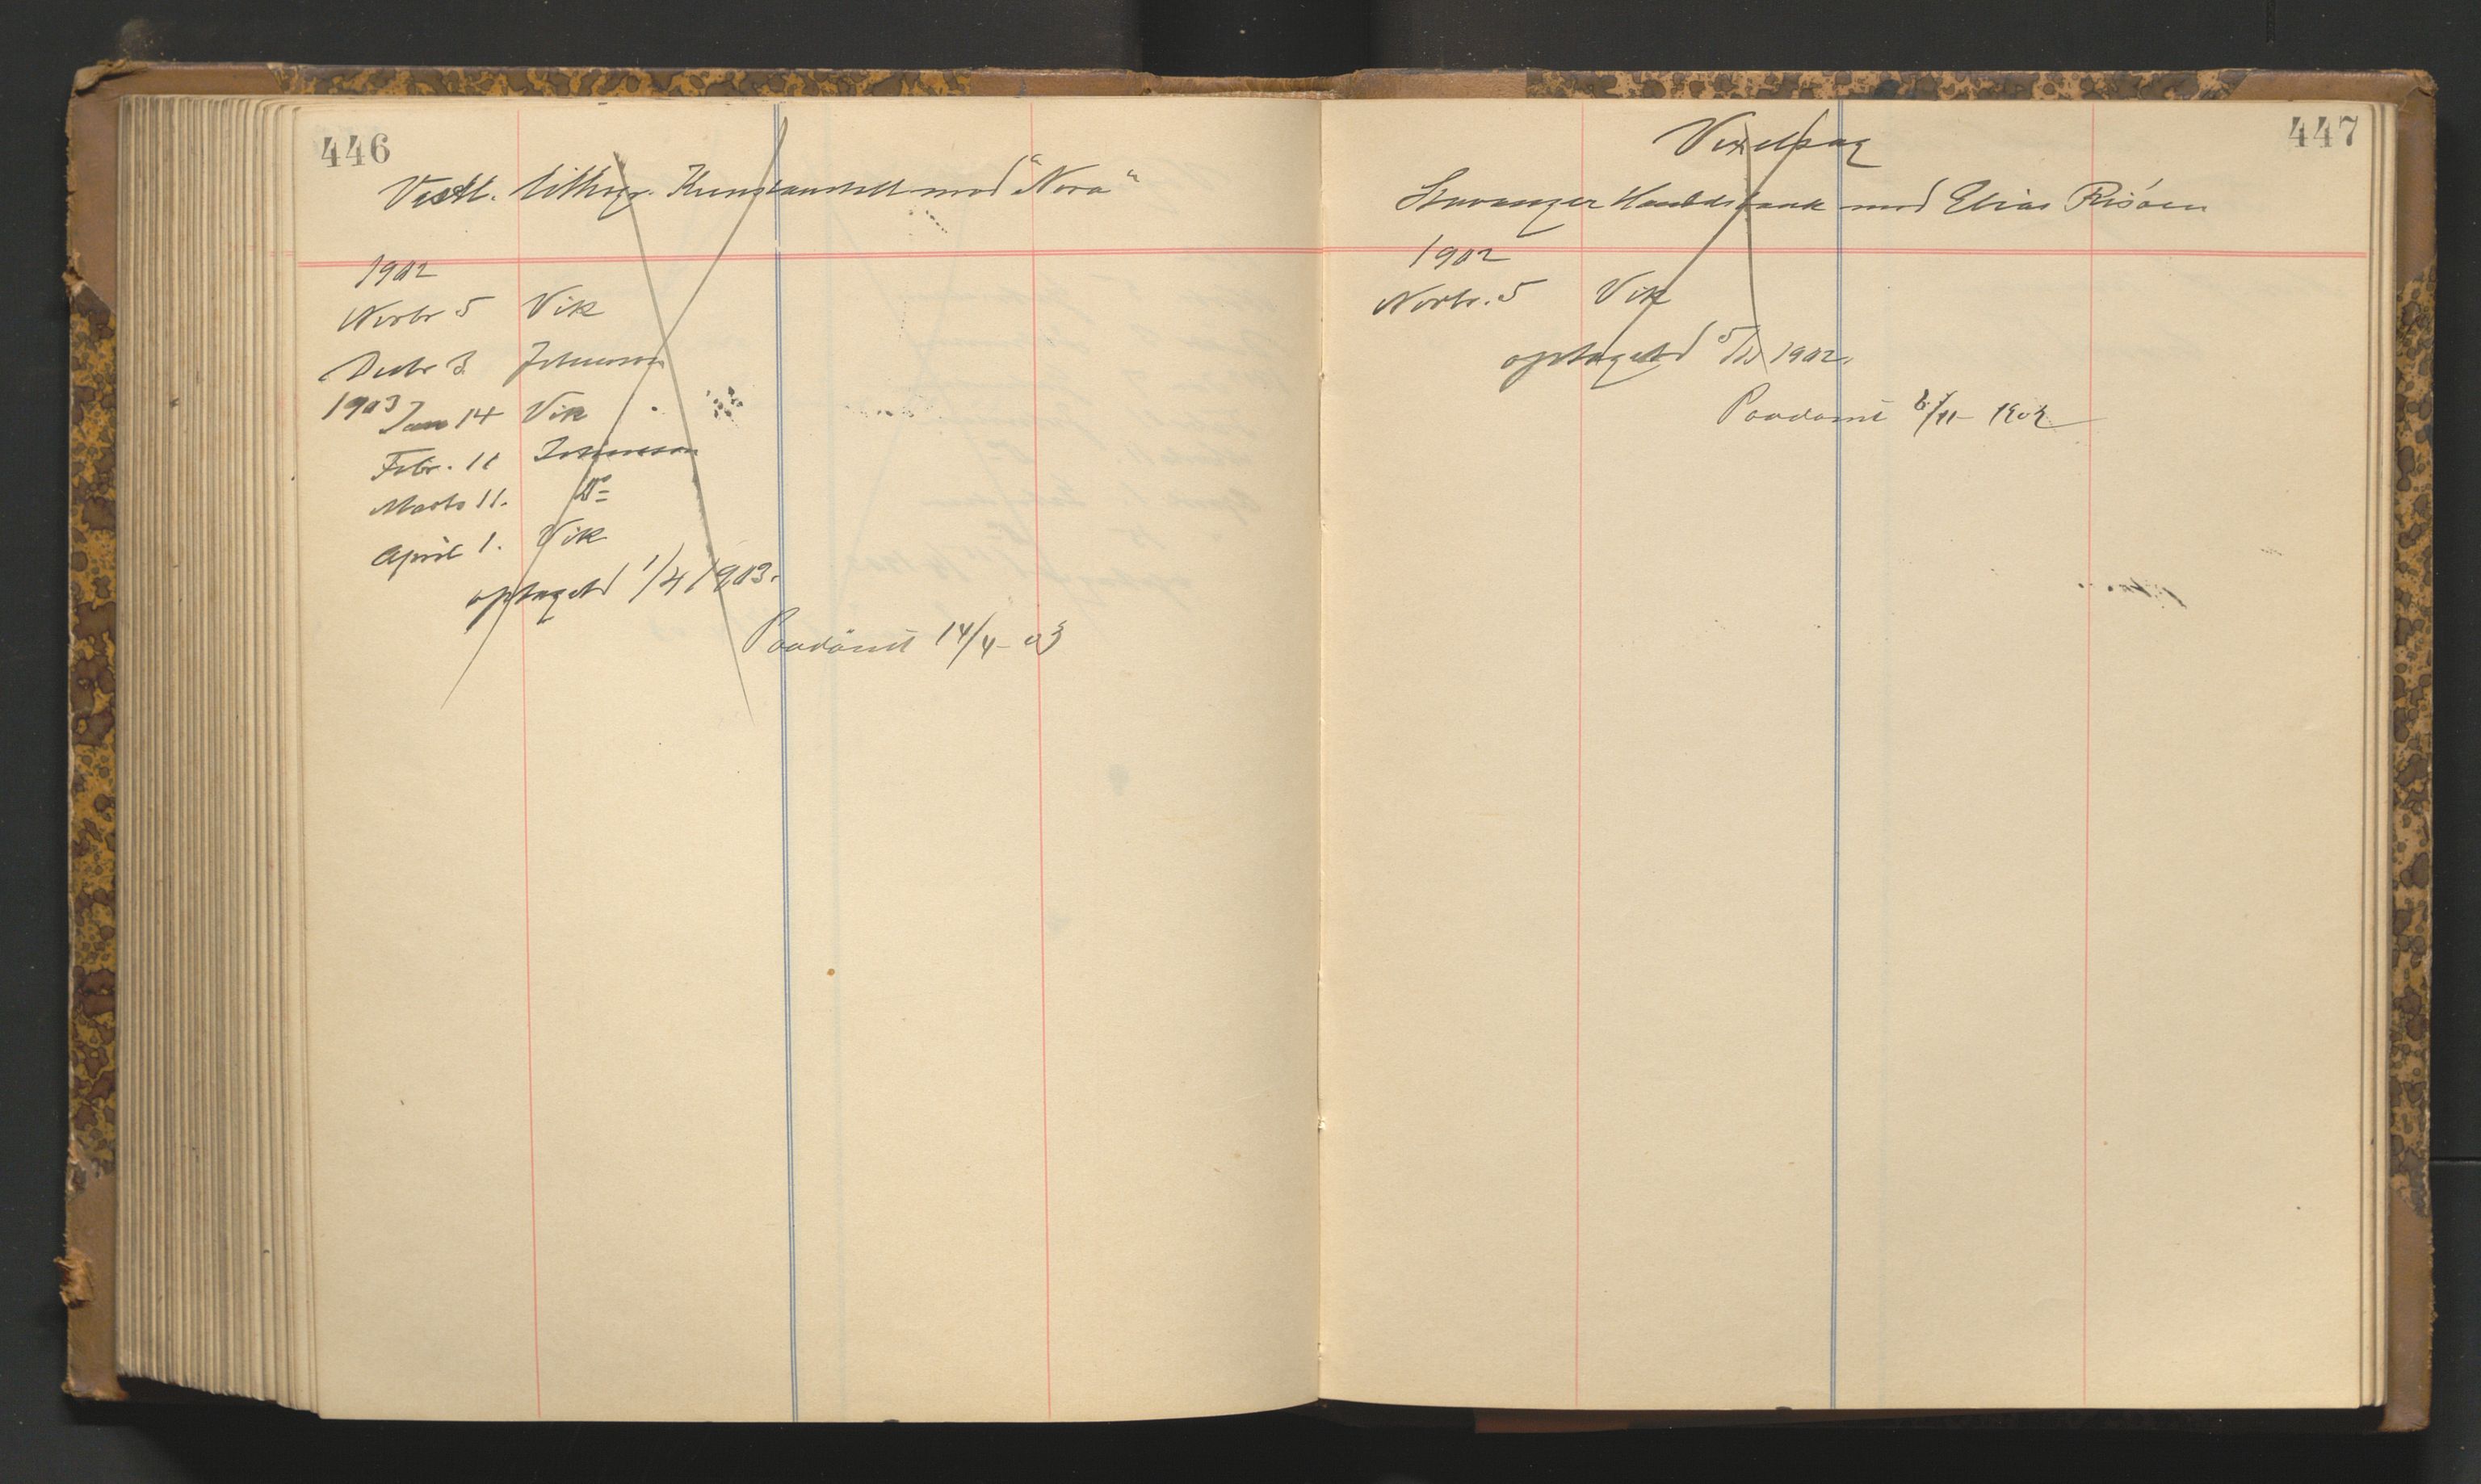 446
Vestl. lithogr. Kunstanstalt mod "Nora"
1902
Novbr 5 Vik
Decbr 3. Johnson
1903 Jan 14 Vik
Febr. 11 Johnson
Marts 11. Do
April 1. Vik
optaget 1/4 1903.
Paadömt 14/4-03
447
Vexelsag
Stavanger Handelsbank mod Elias
1902
Novbr. 5 Vik
optaget 5/11 1902.
Paadömt /11- 1902